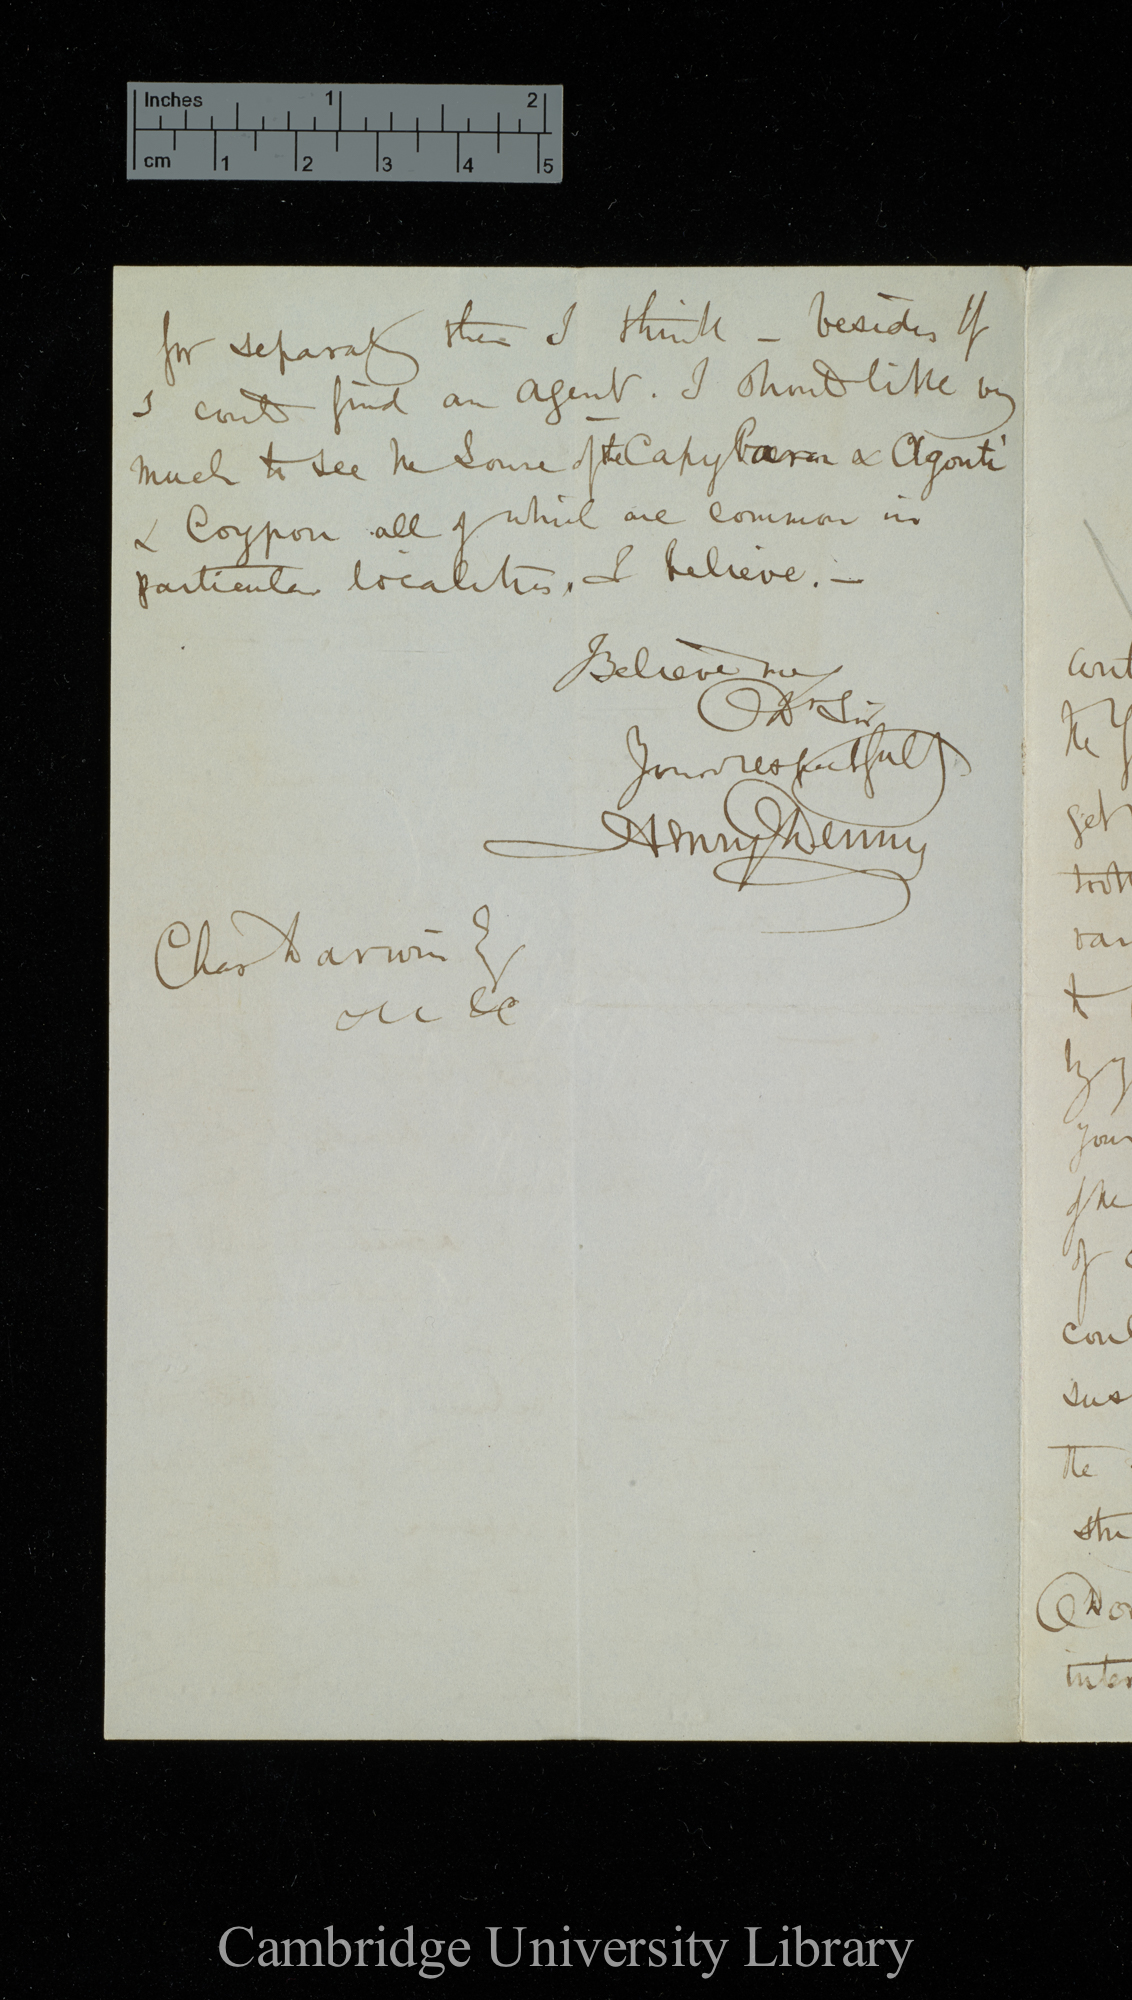 Inches 1 2
cm 1 2 3 4 5
for separating them I think – besides If
I could find an agent. I should like very
much to see the Louse of the Capybara & Agouti
& Coypou all of which are common in
particular localities, I believe. –
Believe me
Dr Sir
Yours respectfully
Henry Denny
Chas Darwin Esq
&c &c
the
get
of the
of
the
Cambridge University Library